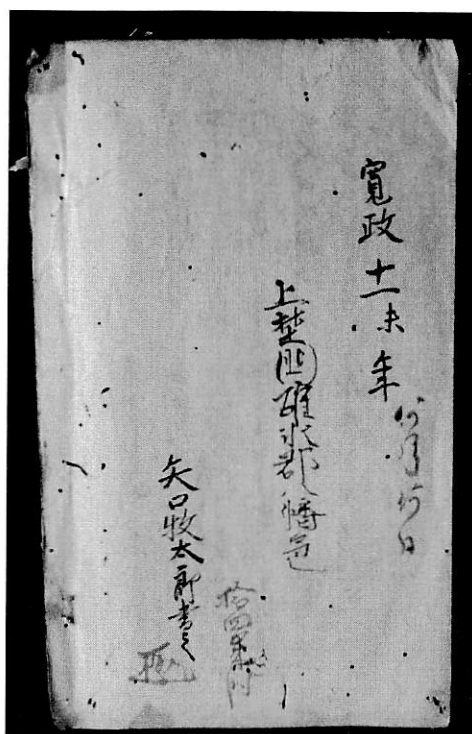 寛政十一未年
何月何日
上埜国碓氷郡八幡邑
矢口牧太郎書之